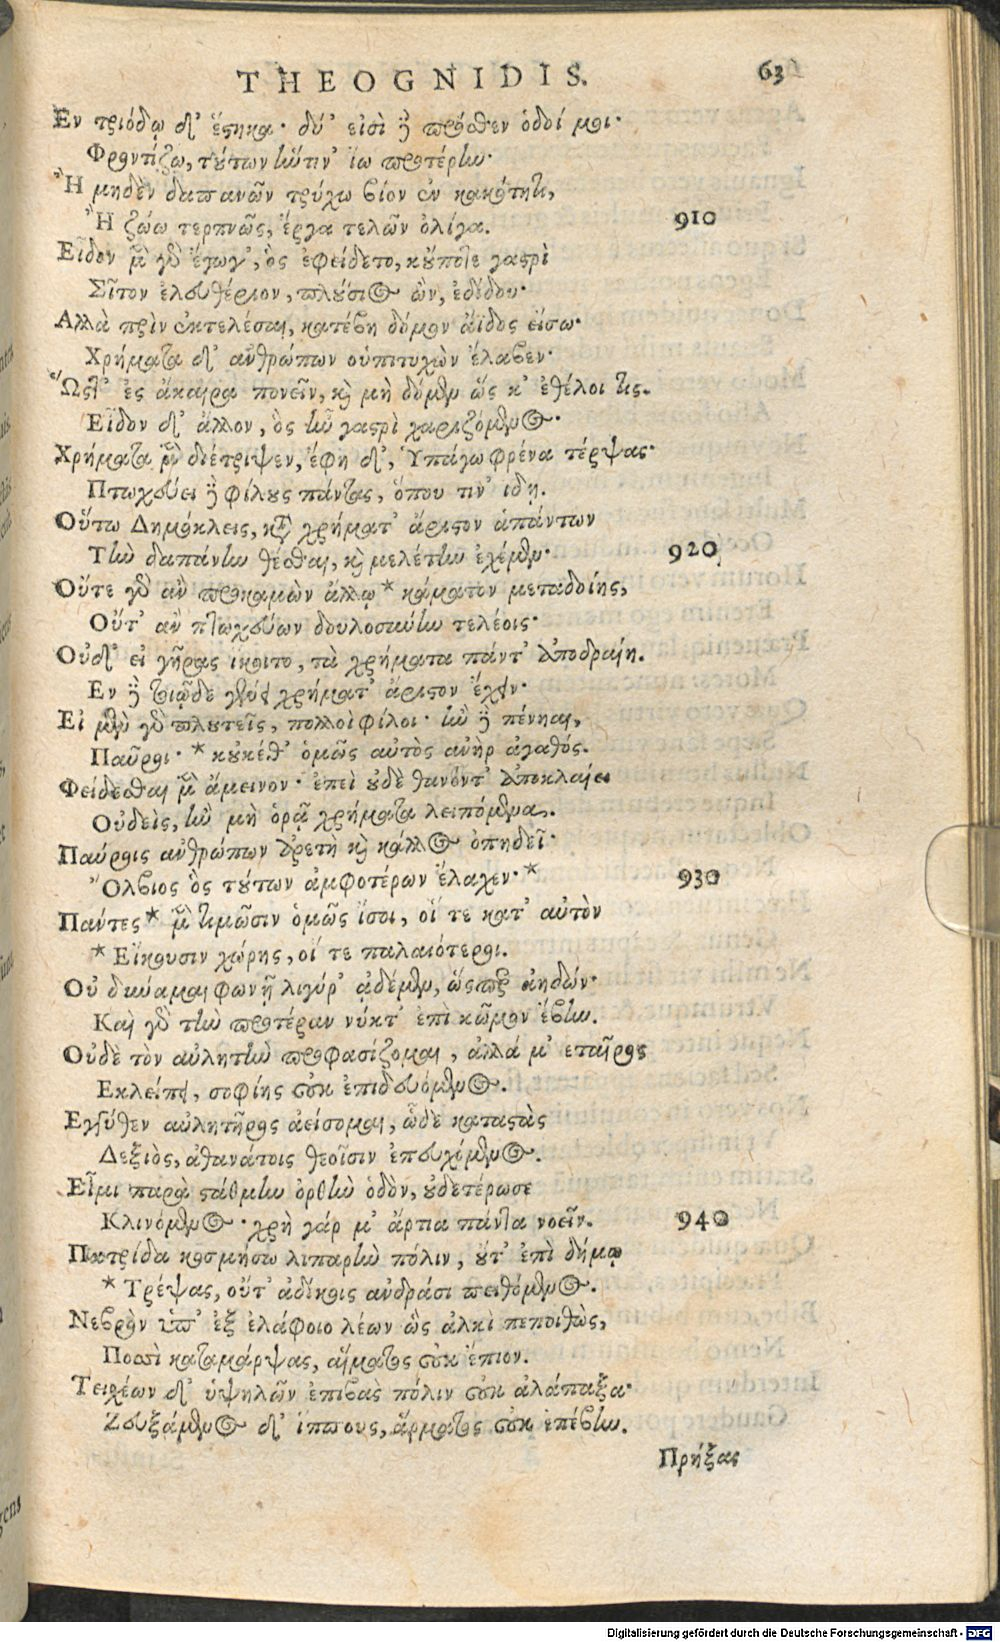 THEOGNIDIS. 63
Εν τριόδῳ δ' ἕστηκα· δύ' εἰσὶ δὲ πρόσθεν ὁδοί μοι·
Φροντίζω, τούτων ἥντιν' ἴω προτέρην·
Ἢ μηδὲν δαπανῶν τρύχω βίον ἐν κακότητι,
Ἢ ζώω τερπνῶς, ἔργα τελῶν ὀλίγα. 910
Εἶδον μὲν γὰρ ἔγωγ', ὃς ἐφείδετο, κοὔποτε γαστρὶ
Σῖτον ἐλευθέριον, πλούσιος ὢν, ἐδίδου·
Αλλὰ πρὶν ἐκτελέσαι, κατέβη δόμον ἄϊδος εἴσω·
Χρήματα δ' ἀνθρώπων οὑπιτυχὼν ἔλαβεν·
Ὥστ' ἐς ἄκαιρα πονεῖν, καὶ μὴ δόμεν ὥς κ' ἐθέλοι τις.
Εἶδον δ' ἄλλον, ὃς ἣν γαστρὶ χαριζόμενος·
Χρήματα μὲν διέτριψεν, ἔφη δ', Ὑπάγω φρένα τέρψας·
Πτωχεύει δὲ φίλους πάντας, ὅπου τιν' ιδῃ.
Οὕτω Δημόκλεις, κατὰ χρήματ' ἄριστον ἁπάντων
Τὴν δαπάνην θέσθαι, καὶ μελέτην ἐχέμεν· 920
Οὔτε γὰρ ἂν προκαμὼν ἄλλῳ * κάματον μεταδοίης,
Οὔτ' ἂν πτωχεύων δουλοσύνην τελέοις·
Οὐδ' εἰ γῆρας ἵκοιτο, τὰ χρήματα πάντ' ἀποδραίη.
Εν δὲ τοιῷδε γένει χρήματ' ἄριστον ἔχειν·
Εἰ μὲν γὰρ πλουτεῖς, πολλοὶ φίλοι· ἢν δὲ πένηαι,
Παῦροι· * κοὐκέθ' ὁμῶς αὐτὸς ἀνὴρ ἀγαθός.
Φείδεσθαι μὲν ἄμεινον· ἐπεὶ οὐδὲ θανόντ' ἀποκλαίει
Οὐδεὶς, ἢν μὴ ὁρᾷ χρήματα λειπόμενα.
Παύροις ἀνθρώπων ἀρετὴ καὶ κάλλος ὀπηδεῖ·
Ὄλβιος ὃς τούτων ἀμφοτέρων ἔλαχεν· * 930
Παντες * μὲν τιμῶσιν ὁμῶς ἴσοι, οἵ τε κατ' αὐτὸν
* Εἴκουσιν χώρης, οἵ τε παλαιότεροι.
Οὐ δύναμαι φωνῇ λιγύρ' ᾀδέμεν, ὥσπερ ἀηδών·
Καὶ γὰρ τὴν προτέραν νύκτ' ἐπὶ κῶμον ἔβην.
Οὐδὲ τὸν αὐλητὴν προφασίζομαι, ἀλλά μ' εταῖρος
Εκλείπει, σοφίης οὐκ ἐπιδευόμενος.
Εγγύθεν αὐλητῆρος ἀείσομαι, ὧδε καταστὰς
Δεξιὸς, ἀθανάτοις θεοῖσιν ἐπευχόμενος.
Εἶμι παρὰ στάθμην ὀρθὴν ὁδὸν, οὐδετέρωσε
Κλινόμενος· χρὴ γάρ μ' ἄρτια πάντα νοεῖν. 940
Πατρίδα κοσμήσω λιπαρὴν πόλιν, οὔτ' ἐπὶ δήμῳ
* Τρέψας, οὔτ' ἀδίκοις ἀνδράσι πειθόμενος.
Νεβρὸν ὑπ' ἐξ ἐλάφοιο λέων ὣς ἀλκὶ πεποιθὼς,
Ποσσὶ καταμάρψας, αἵματος οὐκ ἔπιον.
Τειχέων δ' ὑψηλῶν ἐπιβὰς πόλιν οὐκ ἀλάπαξα·
Ζευξάμενος δ' ἵππους, ἅρματος οὐκ ἐπέβην.
Πρήξας
Digitalisierung gefördert durch die Deutsche Forschungsgemeinschaft - DFG